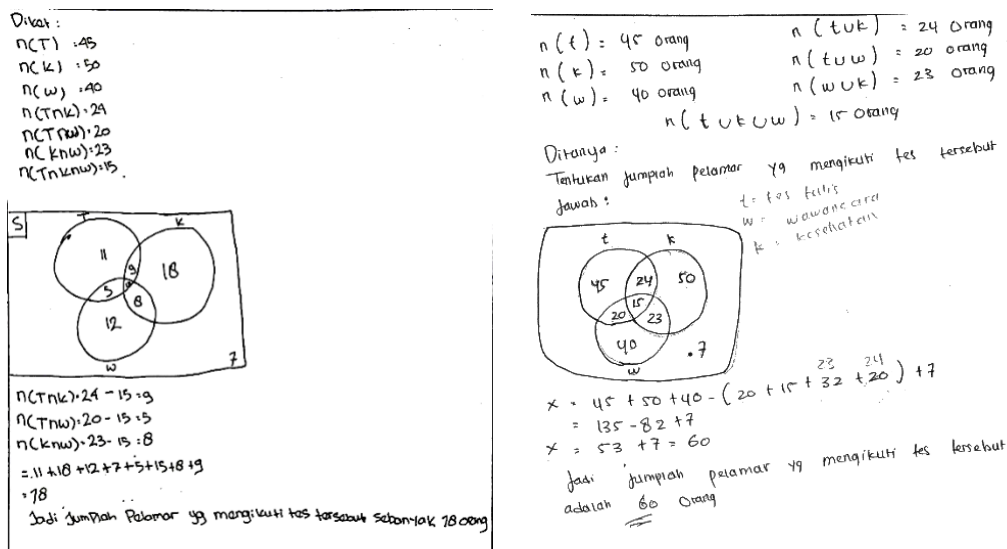 Diket :
n(T) : 45
n(K) : 50
n(w) : 40
n(T∩K) : 24
n(T∩w) : 20
n(K∩w) : 23
n(T∩K∩w) : 15
S
T
K
11
9
18
5
8
12
w
7
n(T∩K) : 24 - 15 : 9
n(T∩w) : 20 - 15 : 5
n(K∩w) : 23 - 15 : 8
= 11 + 18 + 12 + 7 + 5 + 15 + 8 + 9
= 78
Jadi Jumplah Pelamar yg mengikuti tes tersebut sebanyak 78 orang
n(t) = 45 orang
n(k) = 50 orang
n(w) = 40 orang
n(t∪k) = 24 orang
n(t∪w) = 20 orang
n(w∪k) = 23 orang
n(t∪k∪w) = 15 orang
Ditanya :
Tentukan jumplah pelamar yg mengikuti tes tersebut
Jawab :
t = tes tulis
w = wawancara
k = kesehatan
t
k
45
24
50
15
20
23
40
w
.7
23 24
x = 45 + 50 + 40 - (20 + 15 + 32 + 20) + 7
= 135 - 82 + 7
x = 53 + 7 = 60
Jadi jumplah pelamar yg mengikuti tes tersebut
adalah 60 orang